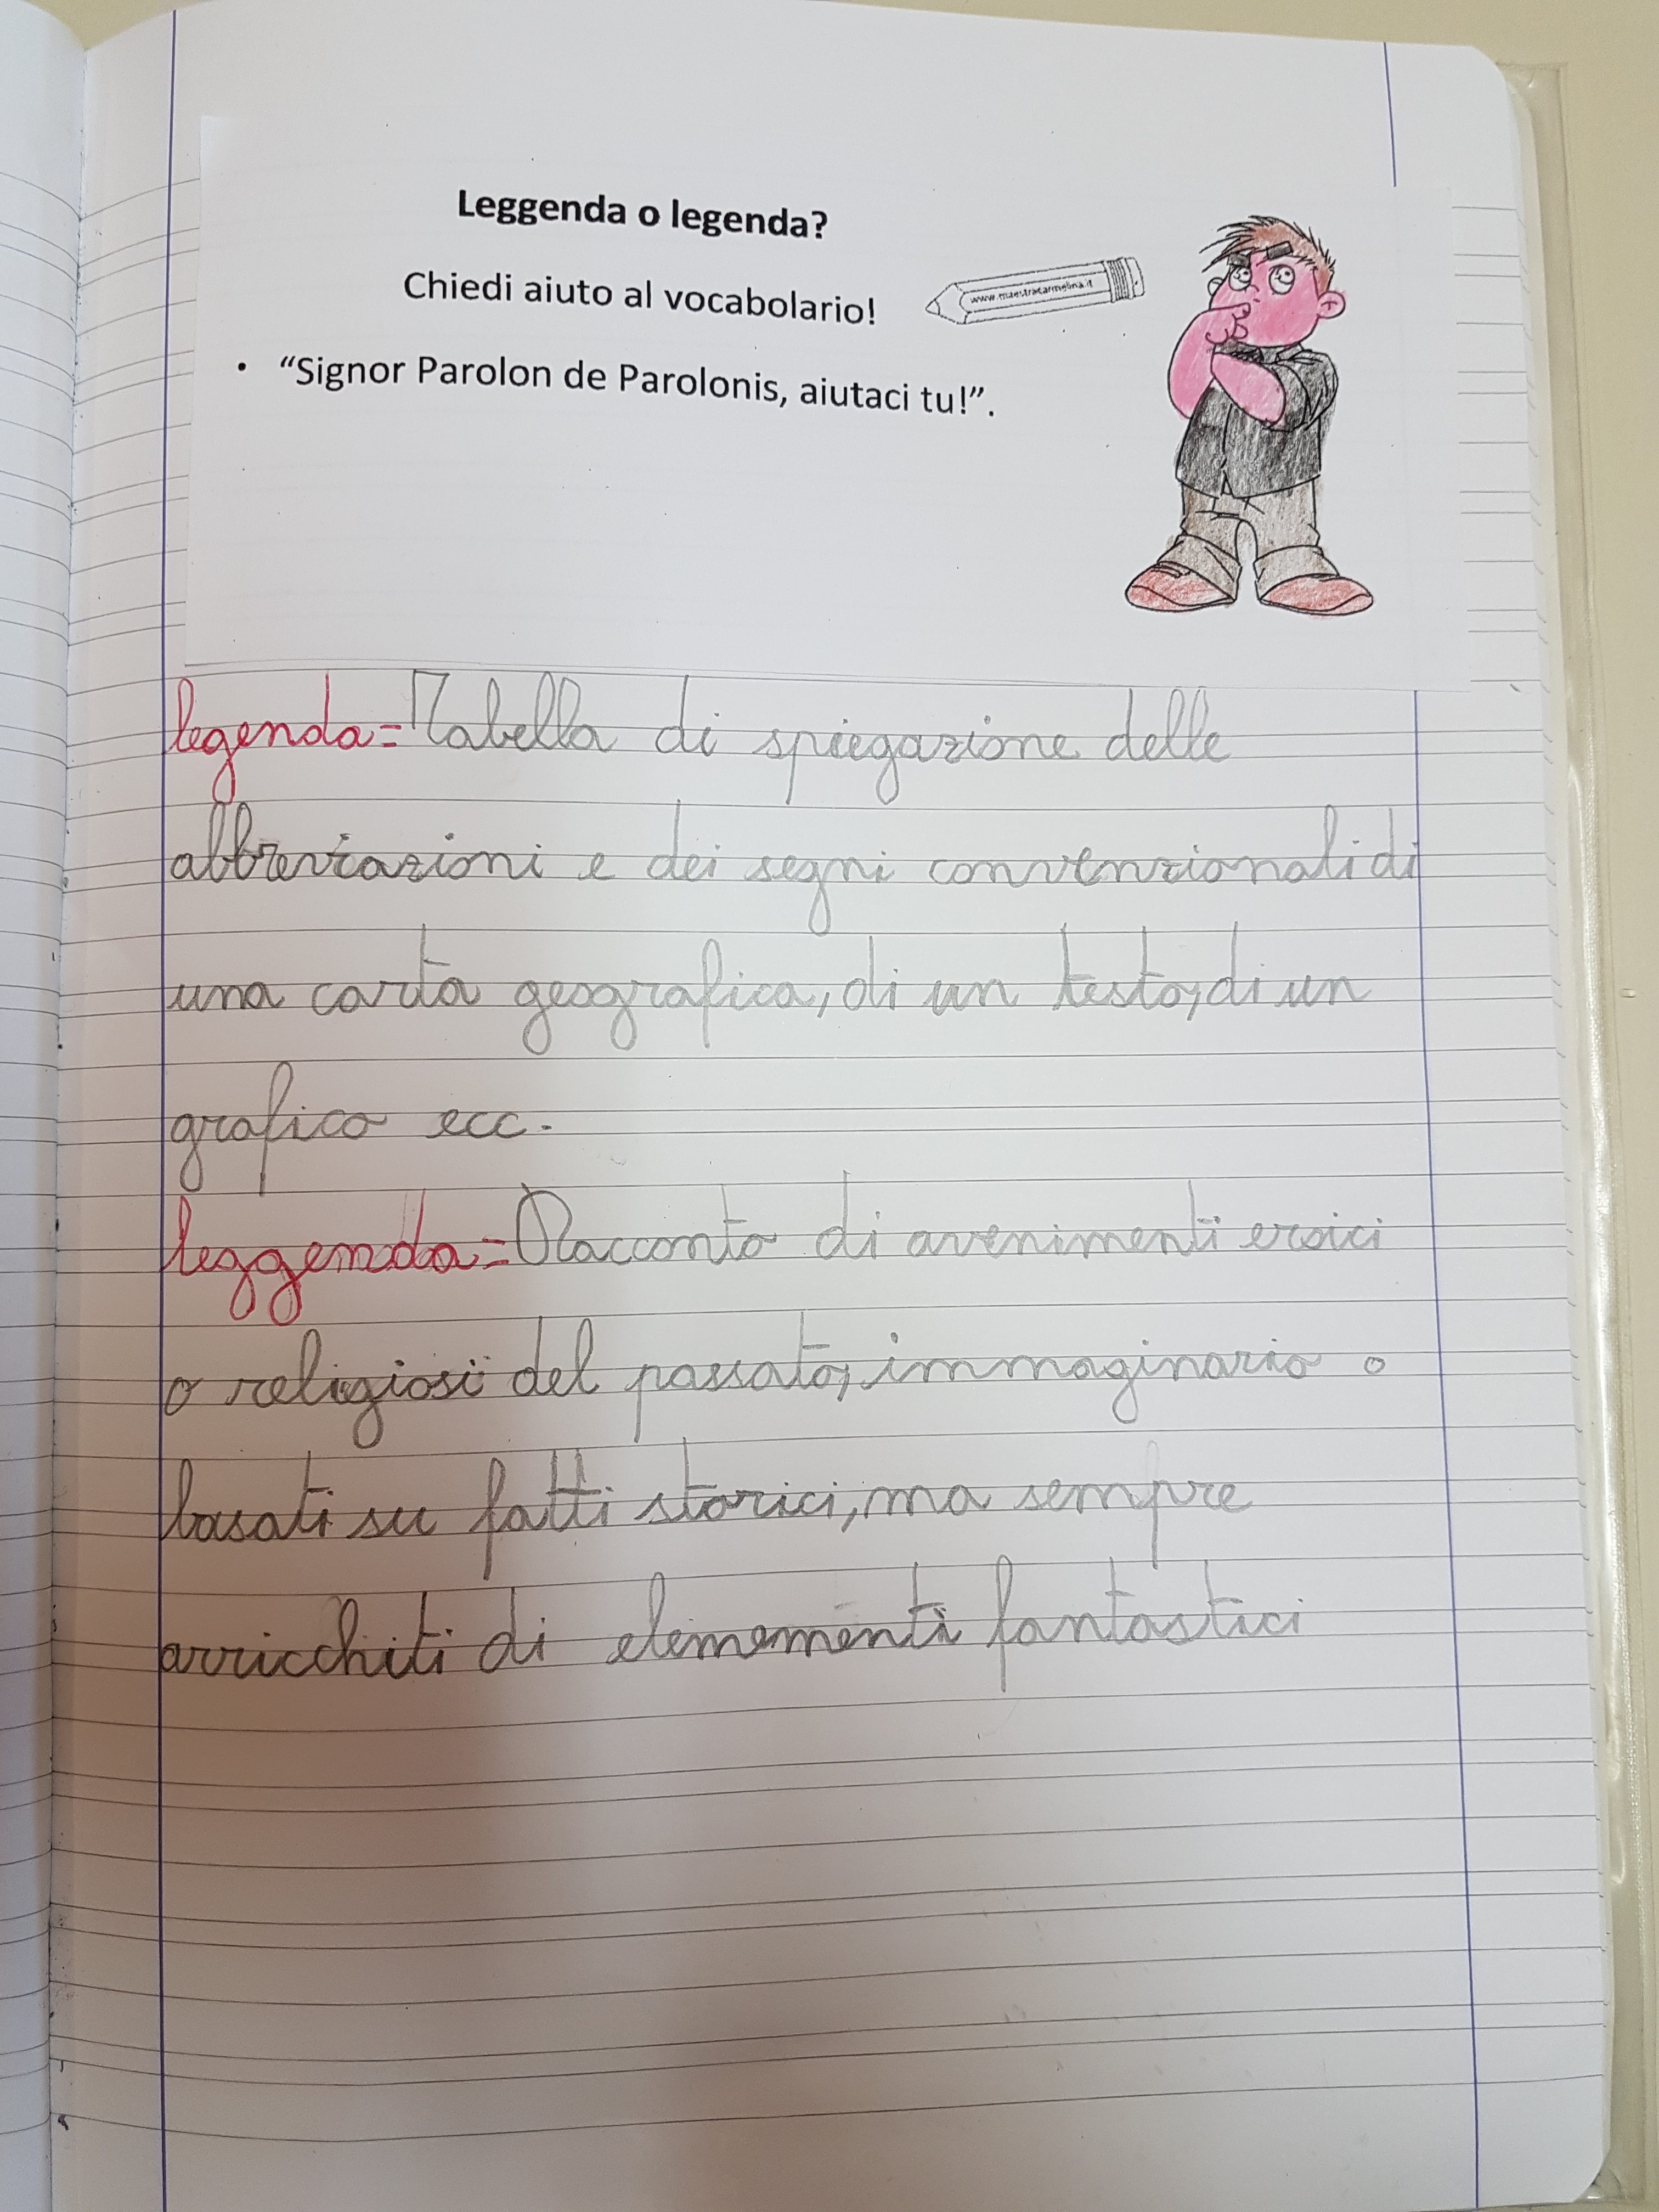 Leggenda o legenda?
Chiedi aiuto al vocabolario!
www.maestracarmelina.it
• “Signor Parolon de Parolonis, aiutaci tu!”.
legenda=Tabella di spiegazione delle
abbreviazioni e dei segni convenzionali di
una carta geografica, di un testo, di un
grafico ecc.
leggenda=Racconto di avenimenti eroici
o religiosi del passato, immaginario o
basati su fatti storici, ma sempre
arricchiti di elemementi fantastici